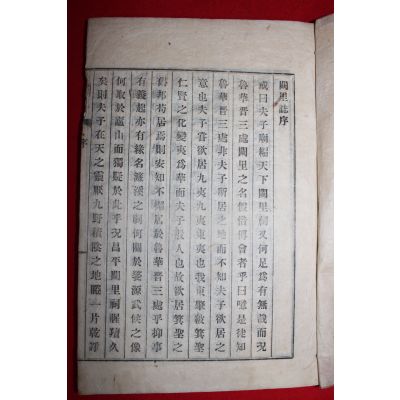 闕里誌序
或曰夫子廟徧天下闕里祠又何足爲有無哉而況
魯華晋三處闕里之名假借傅會者乎曰噫是徒知
魯華晋三處非夫子所居之地而不知夫子欲居之
意也夫子嘗欲居九夷九夷東夷也我東肇被箕聖
仁賢之化變夷爲華而夫子殷人也故欲居箕聖之
舊邦苟居焉則安知不於魯華晋三處乎抑事
有義起亦有緣名濂溪之祠何關於婺源武侯之像
何取於廬山而獨疑於此乎況昌平闕里祠久
矣則夫子在天之靈厭九野積陰之地睠一片乾淨
序